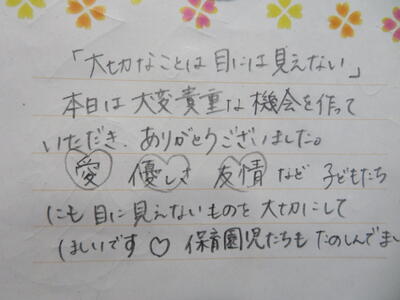 「大切なことは 目には見えない」
本日は 大変貴重な 機会を作って
いただき、ありがとうございました。
愛 優しさ 友情 など 子どもたち
にも 目に見えないものを 大切にして
ほしいです♡ 保育園児たちも たのしんでま